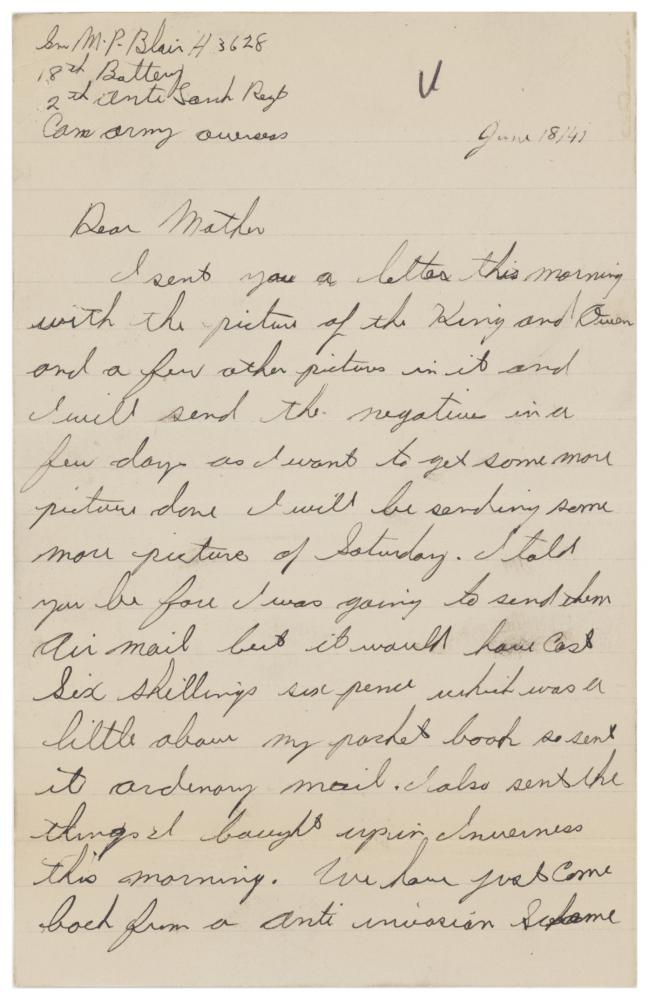 Gnr M.P. Blair H 3628
18th Battery
2th Anti Tank Regt
Can army overseas
June 18/41
Dear Mother
I sent you a letter this morning
with the picture of the King and Queen
and a few other pictures in it and
I will send the negative in a
few days as I want to get some more
picture done I will be sending some
more picture of Saturday. I told
you be fore I was going to send them
Air mail but it would have cost
Six shillings six pence which was a
little above my pocket book so sent
it ordenary mail. I also sent the
things I bought up in Inverness
this morning. We have just come
back from a anti invasion Scheme